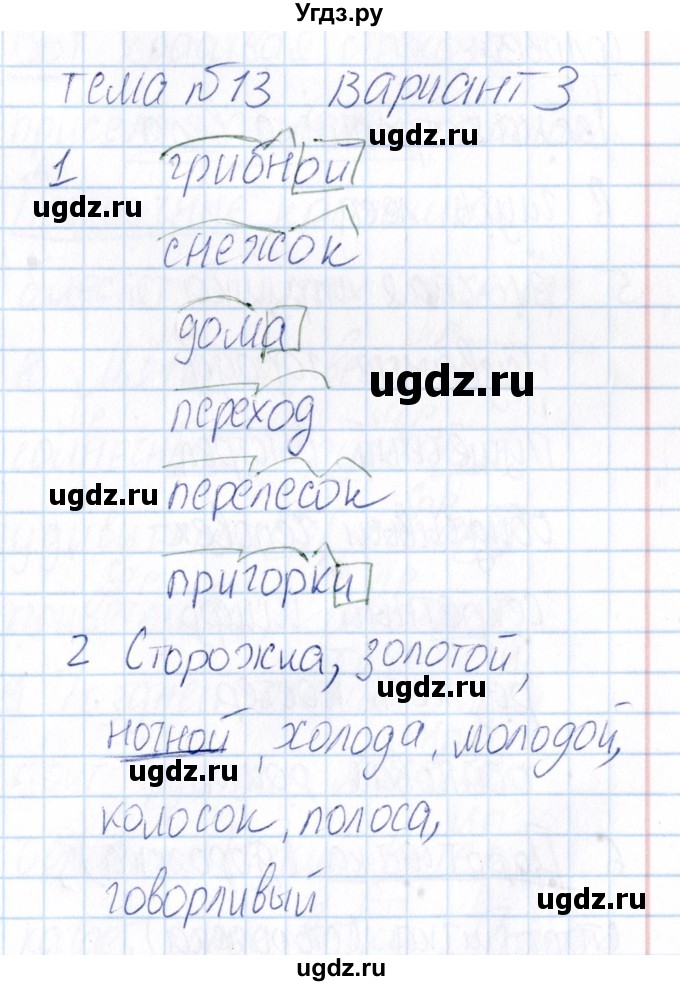 Угдз.ру
тема №13 вариант 3
ugdz.ru
1 грибной
ugdz.ru
снежок
дома
ugdz.ru
переход
ugdz.ru
перелесок
пригорки
2 Сторожка, золотой,
ugdz.ru
ночной, холода, молодой,
ugdz.ru
колосок, полоса,
ugdz.ru
говорливый
ugdz.ru